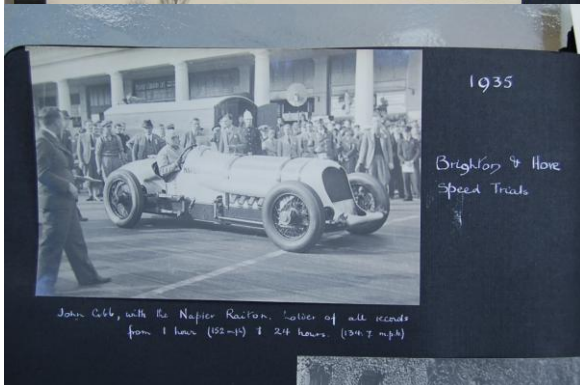 1935
Brighton & Hove
Speed Trials
John Cobb, with the Napier Railton. holder of all records
from 1 hour (152 mph) & 24 hours. (134.7 m.p.h)